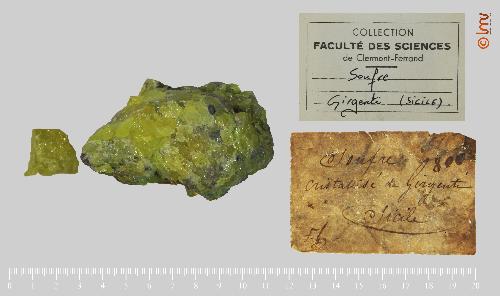 COLLECTION
FACULTÉ DES SCIENCES
de Clermont-Ferrand
Soufre
Girgenti (SICILE)
Soufre
cristallisé de Girgenti
Sicile
0 1 2 3 4 5 6 7 8 9 10 11 12 13 14 15 16 17 18 19 20